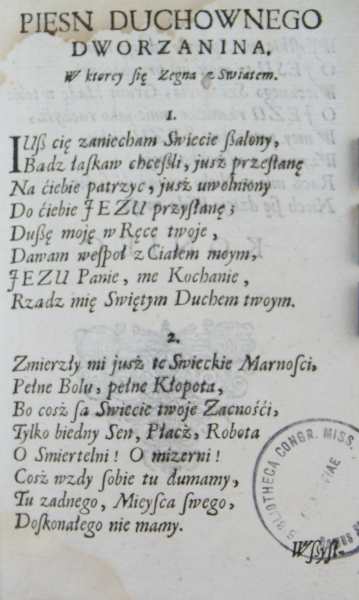 PIESN DUCHOWNEGO
DWORZANINA,
W ktorey się Zegna z Swiatem.
1.
IUß cię zaniecham Swiecie ßalony,
Badz łaſkaw chceſśli, juſż przeſtanę
Na ćiebie patrzyc, juſż uwolniony
Do ćiebie JEZU przyſtanę;
Dußę moję w Ręce twoje,
Dawam weſpoł z Ciałem moym,
JEZU Panie, me Kochanie,
Rządz mię Swiętym Duchem twoym.
2.
Zmierzły mi juſż te Swieckie Marnoſci,
Pełne Bolu, pełne Kłopota,
Bo cosż ſa Swiecie twoje Zacnośći,
Tylko biedny Sen, Płacż, Robota
O Smiertelni! O mizerni!
Cosż wzdy ſobie tu dumamy,
Tu zadnego, Mieyſca ſwego,
Doſkonałego nie mamy.
Wſzyſt-
BIBLIOTHECA CONGR. MISS.